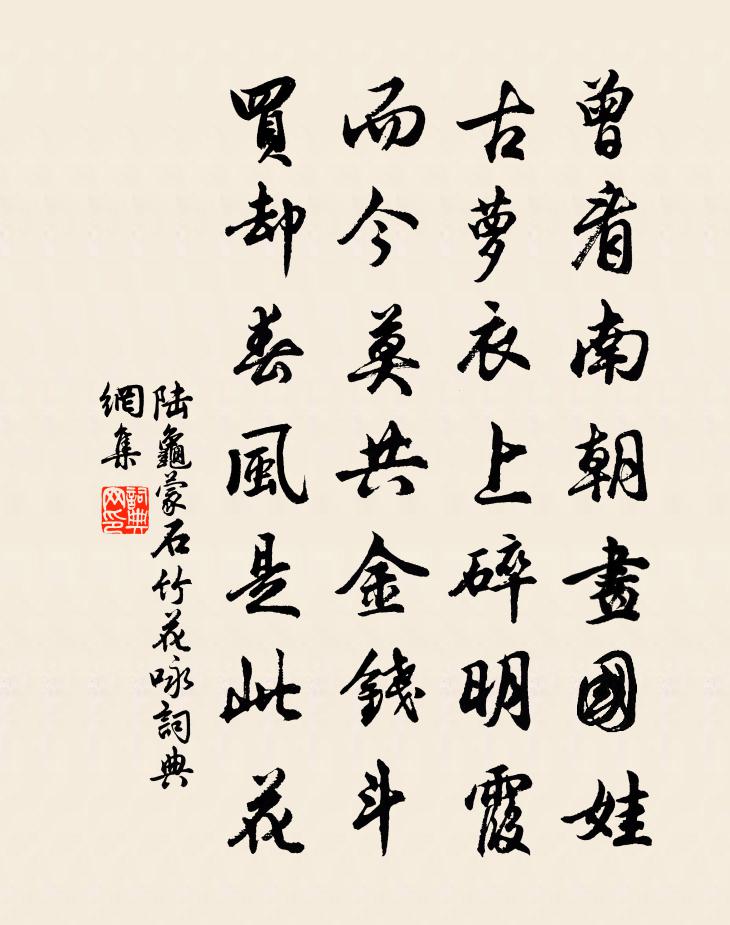 曾看南朝畫國娃
古蘿衣上碎明霞
而今莫共金錢斗
買却春風是此花
陸龜蒙石竹花咏詞典
網集
詞典
网印